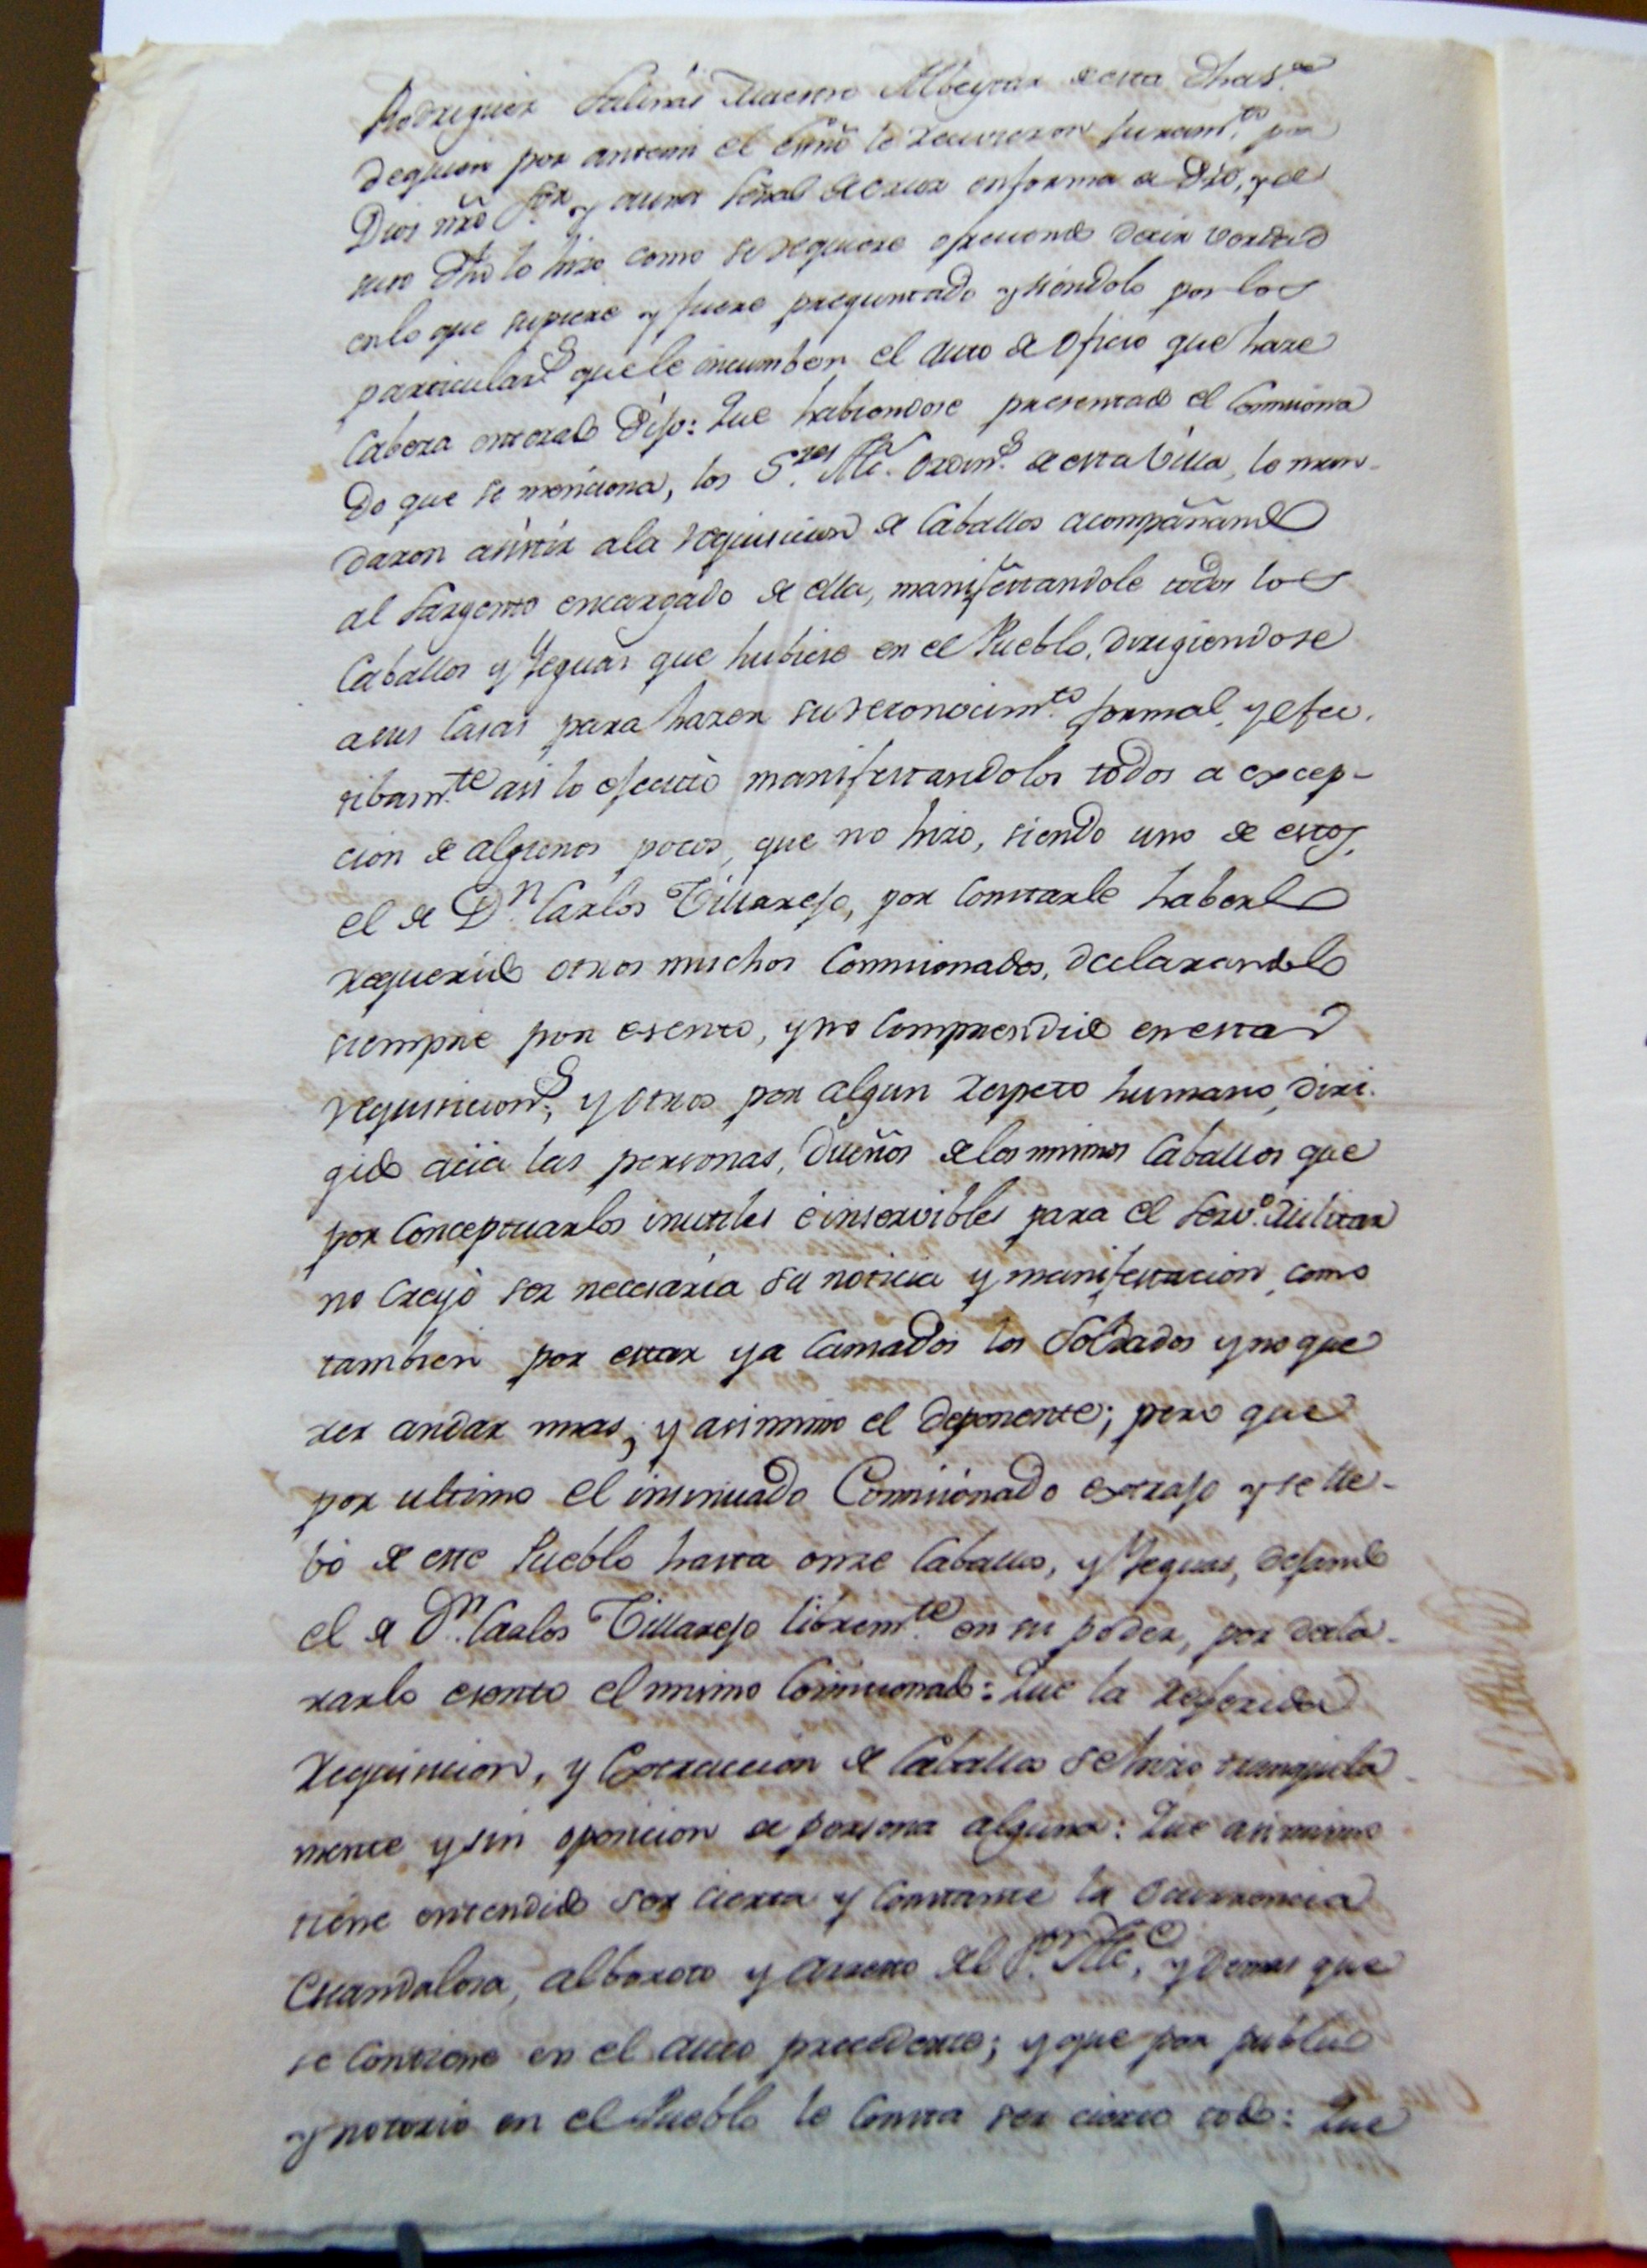 Rodriguez Salinas Maestro Albeytar de esta dha v.ª
dequien por antemi el Essnô le recivieron juram.to por
Dios nrô S.or y auna señal de cruz enforma de Dro, y de
suio dho lo hizo como se requiere ofreciendo decir verdad
enlo que supiere y fuere preguntado y siendolo por los
particulars que le incumben el auto de oficio que haze
Cabeza enterado Dijo: Que habiendose presentado el Comisiona
do que se menciona, los S.res Alc.s Ordin.s de esta Villa, le man-
daron asistir ala requisicion de Caballos acompañando
al Sargento encargado de ella, manifestandole todos los
Caballos y Yeguas que hubiese en el Pueblo, dirigiendose
a sus Casas para hazer su reconocim.to formal, y efec-
tibam.te asi lo efectuó manifestandolos todos a excep-
cion de algunos pocos, que no hizo, siendo uno de estos,
el de D.n Carlos Villarejo, por Constarle haberlo
requerido otros muchos Comisionados, declarandolo
siempre por esento, y no Comprendido en esta
requisicion.s, y otros por algun respeto humano, diri-
gido acia las personas, dueños delos mismos Caballos que
por Conceptuarlos inutiles é inservibles para el Serv.o Militar
no Creyó ser necesaria su noticia y manifestacion, como
tambien por estar ya Cansados los Soldados y no que
rer andar mas, y asimismo el deponente; pero que
por ultimo el insinuado Comisionado extrajo y se lle-
bó de este Pueblo hasta onze Caballos, y Yeguas, dejando
el de D.n Carlos Villarejo librem.te en su poder, por decla-
rarlo esento el mismo Comisionado: Que la referida
requisicion, y Extraccion de Caballos se hizo tranquila-
mente y sin oposicion de persona alguna: Que asimismo
tiene entendido ser cierta y Constante la Ocurrencia
Escandalosa, alboroto y arresto del S.or Alc.e, y demas que
se Contiene en el auto precedente; y que por publico
y notorio en el Pueblo le Consta ser cierto todo: Que